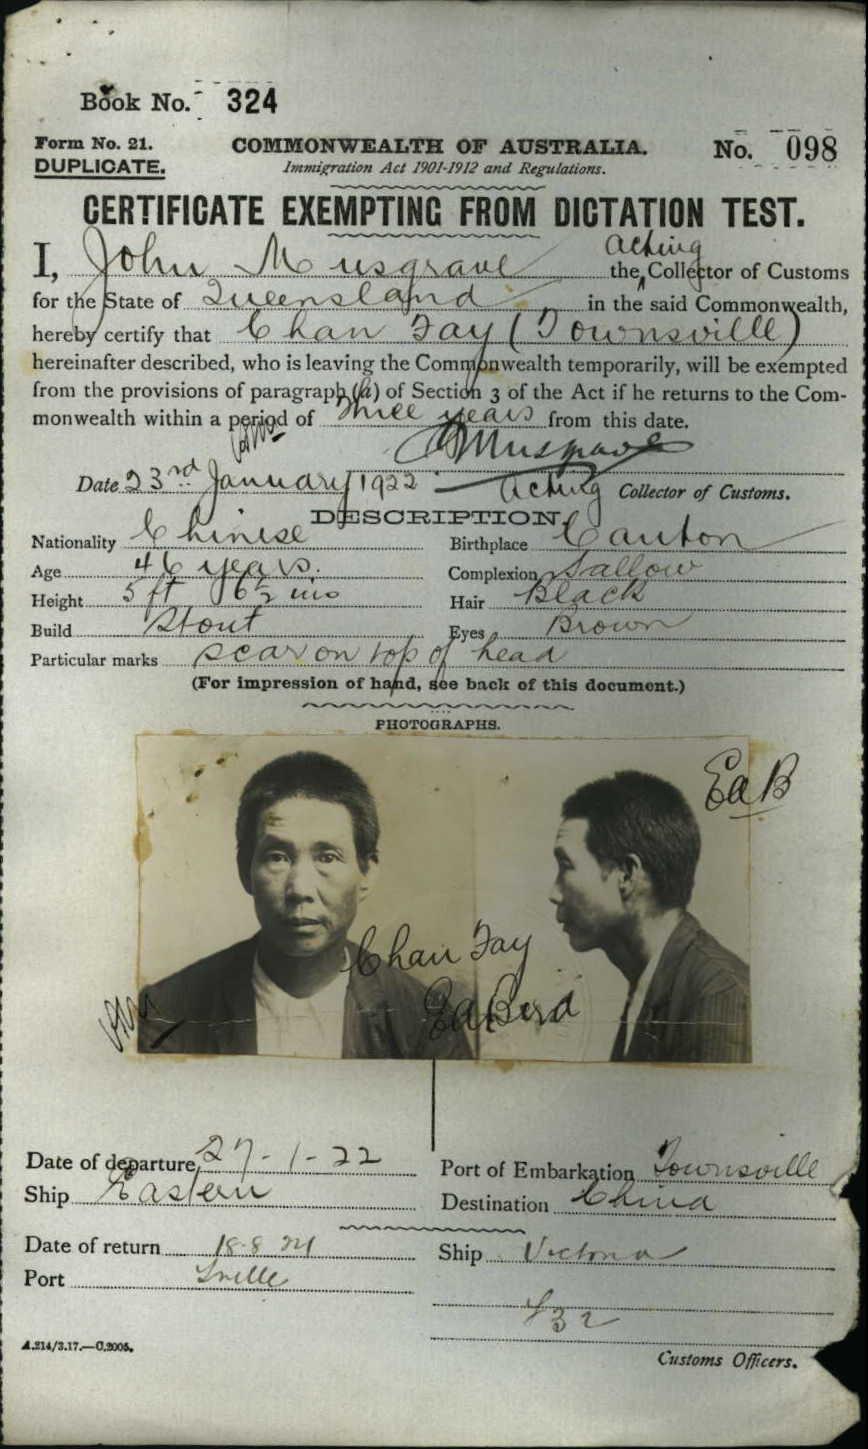 Book No. 324
Form No. 21. COMMONWEALTH OF AUSTRALIA. No. 098
DUPLICATE. Immigration Act 1901-1912 and Regulations.
CERTIFICATE EXEMPTING FROM DICTATION TEST.
Acting
I, John Musgrave the Collector of Customs
for the State of Queensland in the said Commonwealth,
hereby certify that Chan Fay (Townsville)
hereinafter described, who is leaving the Commonwealth temporarily, will be exempted
from the provisions of paragraph (a) of Section 3 of the Act if he returns to the Com-
monwealth within a period of three years from this date.
Musgrave
Date 23rd January 1922 Acting Collector of Customs.
DESCRIPTION.
Nationality Chinese Birthplace Canton
Age 46 years. Complexion Sallow
Height 5 ft 6½ ins Hair Black
Build Stout Eyes Brown
Particular marks scar on top of head
(For impression of hand, see back of this document.)
PHOTOGRAPHS.
EaB
Chan Fay
Ea Bird
Date of departure 27-1-22 Port of Embarkation Townsville
Ship Eastern Destination China
Date of return 18.8.24 Ship Victoria
Port Tville
A.214/3.17.—C.2005.
Customs Officers.